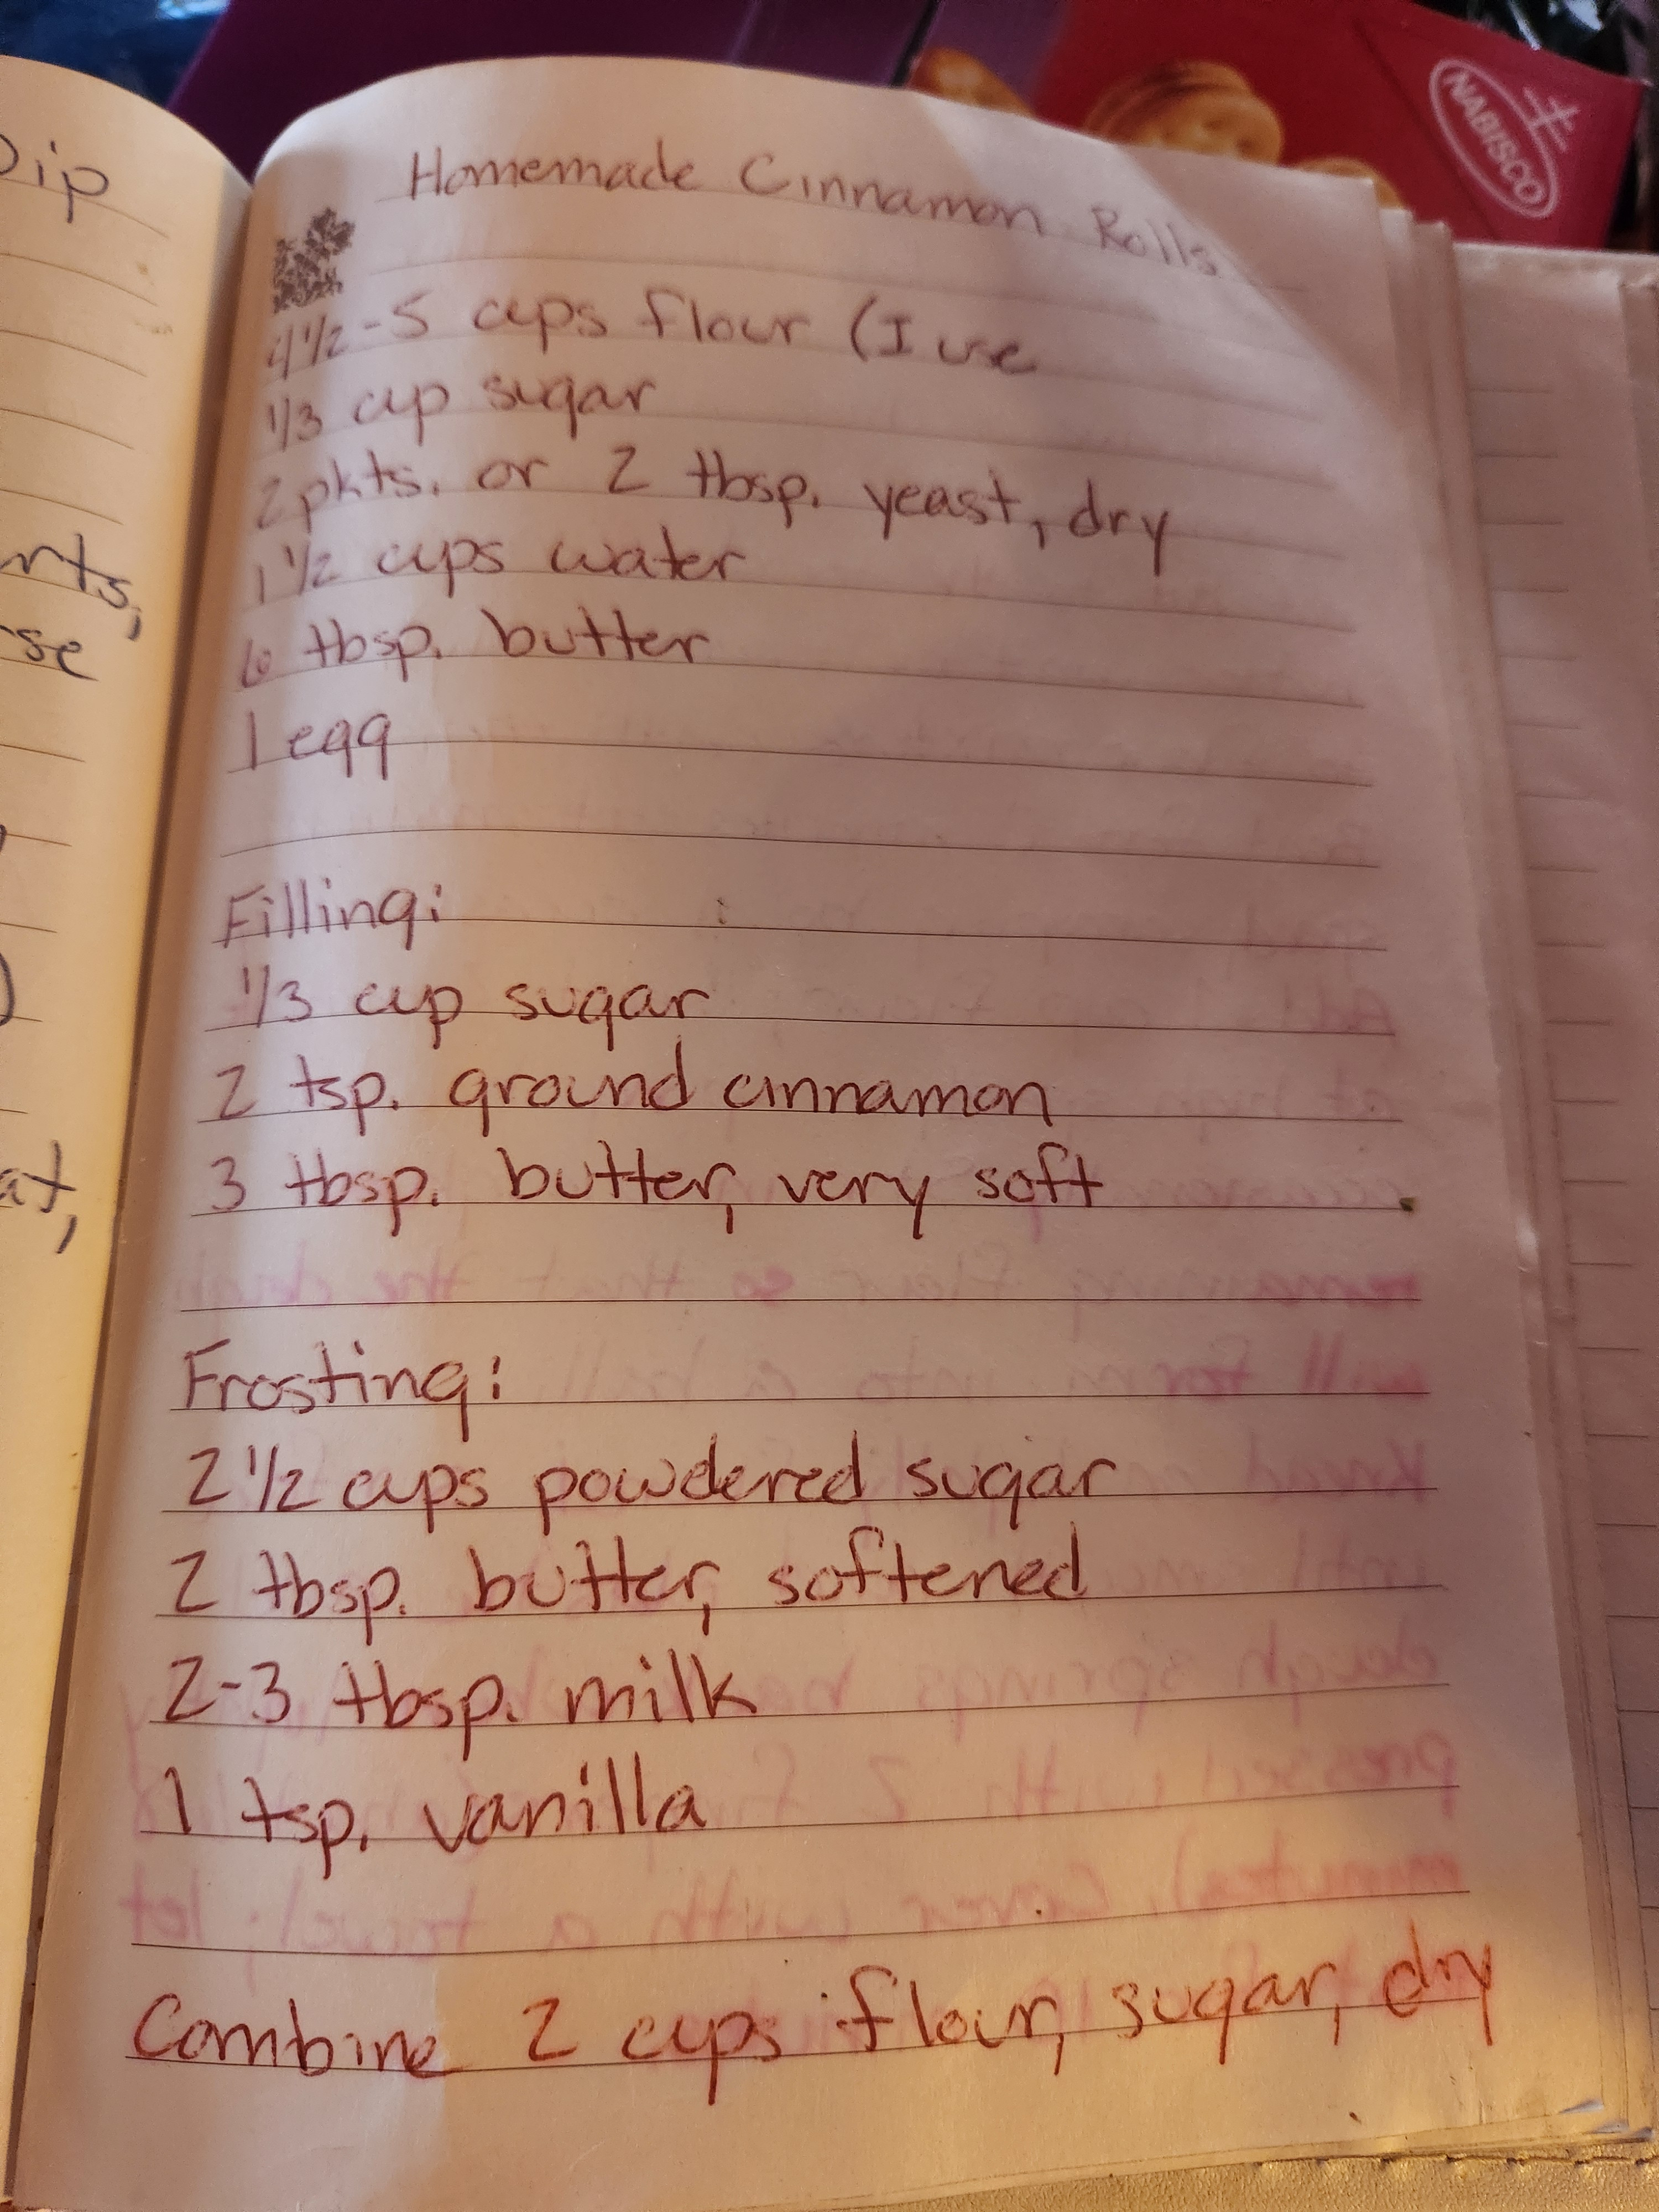 Dip
rts,
se
at,
NABISCO
Homemade Cinnamon Rolls
4 1/2 - 5 cups flour (I use
1/3 cup sugar
2 pkts. or 2 tbsp. yeast, dry
1 1/2 cups water
6 tbsp. butter
1 egg
Filling:
1/3 cup sugar
2 tsp. ground cinnamon
3 tbsp. butter, very soft
Frosting:
2 1/2 cups powdered sugar
2 tbsp. butter, softened
2-3 tbsp. milk
1 tsp. vanilla
Combine 2 cups flour, sugar, dry